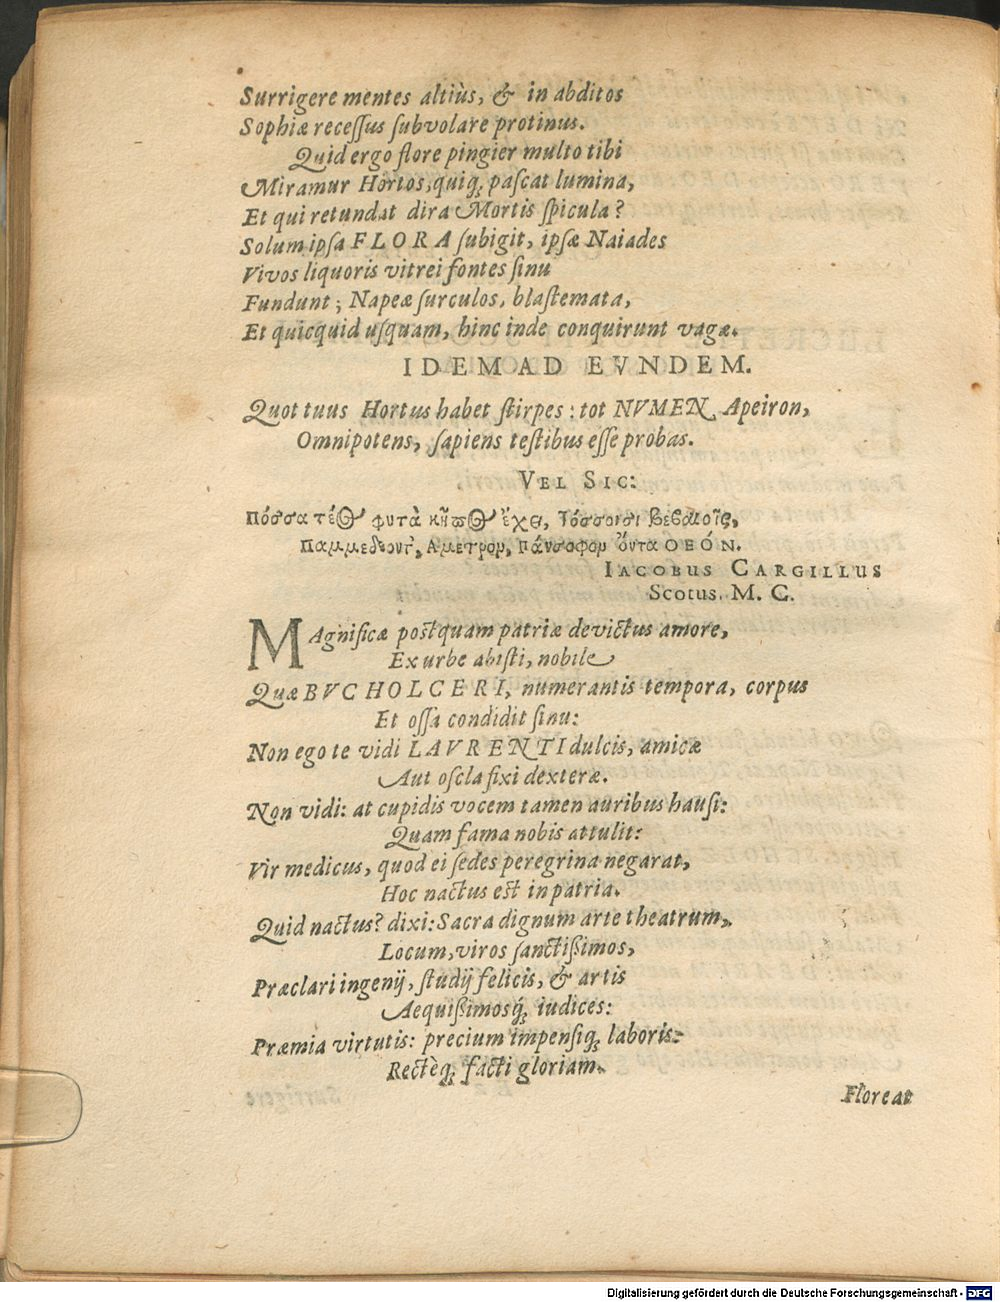 Surrigere mentes altiùs, & in abditos
Sophiæ recessus subvolare protinus.
Quid ergo flore pingier multo tibi
Miramur Hortos, quiq; pascat lumina,
Et qui retundat dira Mortis spicula?
Solum ipsa FLORA subigit, ipsæ Naiades
Vivos liquoris vitrei fontes sinu
Fundunt; Napeæ surculos, blastemata,
Et quicquid usquam, hinc inde conquirunt vagæ.
IDEM AD EVNDEM.
Quot tuus Hortus habet stirpes: tot NVMEN Apeiron,
Omnipotens, sapiens testibus esse probas.
VEL SIC:
Πόσσα τέος φυτὰ κῆπος ἔχει, Τόσσοισι βεβαιοῖς,
Παμμεδέοντ', Αμετρον, Πάνσοφον ὄντα ΘΕΌΝ.
IACOBUS CARGILLUS
Scotus. M. C.
MAgnificæ postquam patriæ devictus amore,
Ex urbe abisti, nobile
Quæ BVCHOLCERI, numerantis tempora, corpus
Et ossa condidit sinu:
Non ego te vidi LAVRENTI dulcis, amicæ
Aut oscla fixi dexteræ.
Non vidi: at cupidis vocem tamen auribus hausi:
Quam fama nobis attulit:
Vir medicus, quod ei sedes peregrina negarat,
Hoc nactus est in patria.
Quid nactus? dixi: Sacra dignum arte theatrum,
Locum, viros sanctißimos,
Præclari ingenij, studij felicis, & artis
Aequißimosq; iudices:
Præmia virtutis: precium impensiq; laboris:
Rectèq; facti gloriam.
Floreat
Digitalisierung gefördert durch die Deutsche Forschungsgemeinschaft - DFG